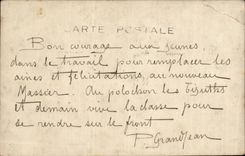 CARTE POSTALE
Bon courage aux jeunes
dans le travail pour remplacer les
aines et félicitations, au nouveau
Massier. Au polochon les bizuths
et demain vive la classe pour
se rendre sur le front
P Grandjean